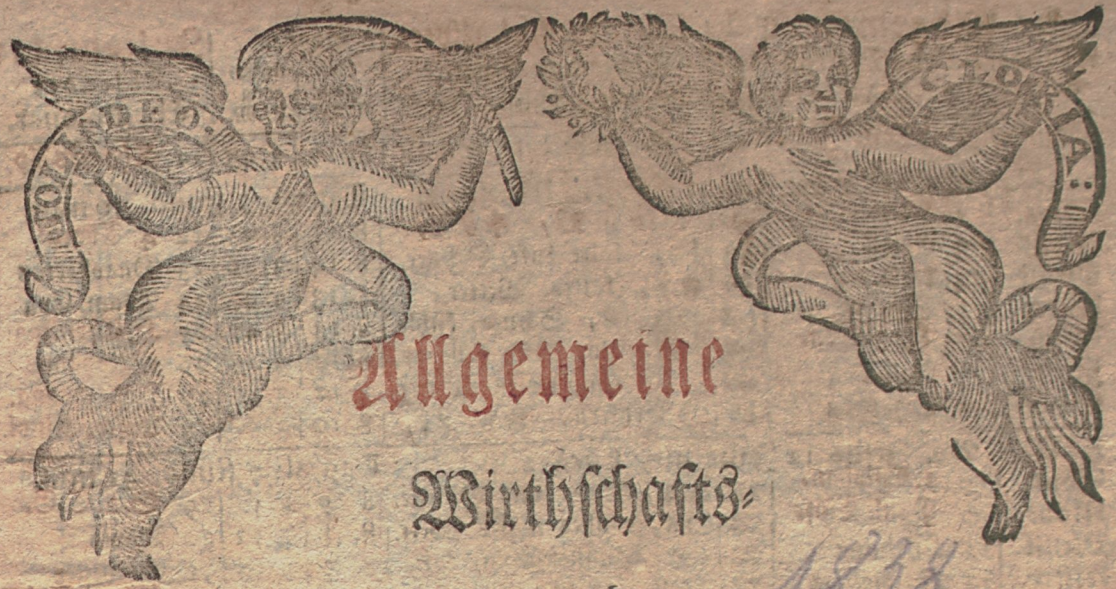 SOLI DEO.
GLORIA:
Allgemeine
Wirthschafts-
1838